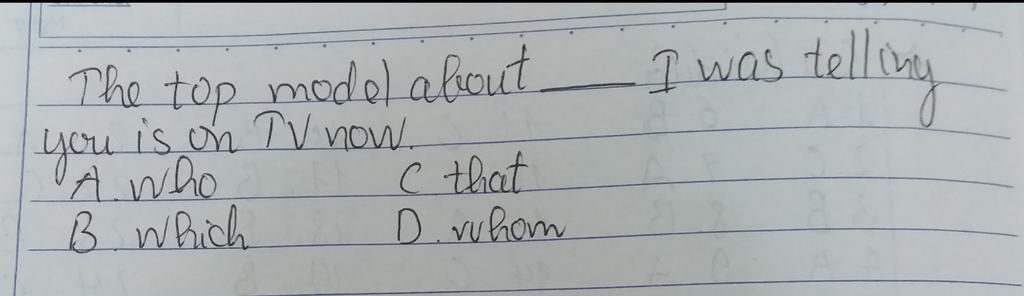 The top model about ____ I was telling
you is on TV now.
A. who C that
B. which D. whom